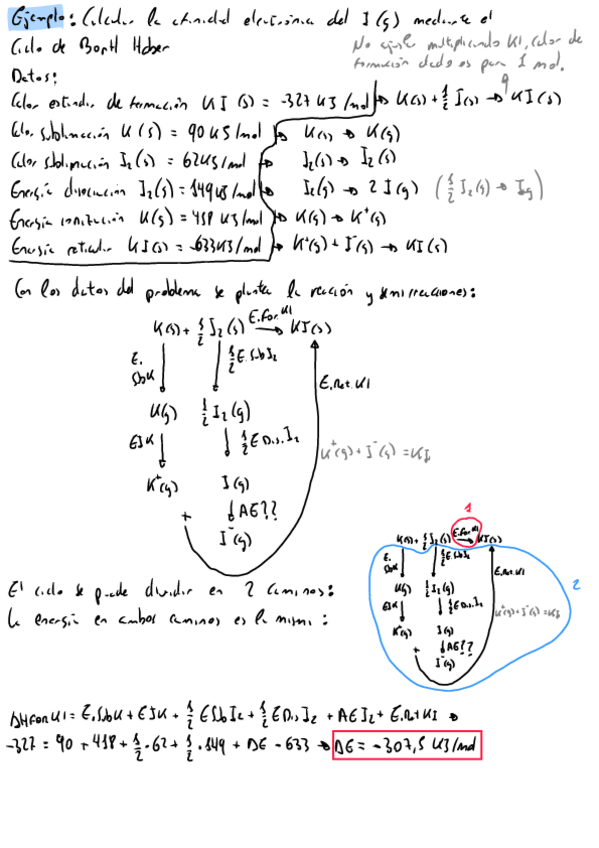 Ejemplo: Calcular la afinidad electrónica del I(g) mediante el
Ciclo de Borh Haber
No ajuste multiplicando KI, calor de
formación dado es para 1 mol.
Datos:
Calor estándar de formación KI(s) = -327 KJ/mol → K(s) + 1/2 I₂(s) → KI(s)
Calor sublimación K(s) = 90 KJ/mol → K(s) → K(g)
Calor sublimación I₂(s) = 62 KJ/mol → I₂(s) → I₂(s)
Energía disociación I₂(s) = 149 KJ/mol → I₂(g) → 2 I(g) (1/2 I₂(g) → I g)
Energía ionización K(g) = 418 KJ/mol → K(g) → K⁺(g)
Energía reticular KI(s) = -633 KJ/mol → K⁺(g) + I⁻(g) → KI(s)
Con los datos del problema se plantea la reacción y semirreacciones:
K(s) + 1/2 I₂(s) E.For.KI → KI(s)
E. Sub K
1/2 E.Sub I₂
E.Ret.KI
K(g) 1/2 I₂(g)
EI K
1/2 E Dis. I₂
K⁺(g) + I⁻(g) = KI
K⁺(g) I(g)
+ AE??
I⁻(g)
1
K(s) + 1/2 I₂(s) E.For.KI → KI(s)
E. Sub K
1/2 E.Sub I₂
E.Ret.KI
2
K(g) 1/2 I₂(g)
EI K
1/2 E Dis. I₂
K⁺(g) + I⁻(g) = KI
K⁺(g) I(g)
+ AE??
I⁻(g)
El ciclo se puede dividir en 2 caminos:
la energía en ambos caminos es la misma:
ΔH For KI = E.Sub K + EI K + 1/2 E Sub I₂ + 1/2 E Dis I₂ + AE I₂ + E.Ret KI →
-327 = 90 + 418 + 1/2 · 62 + 1/2 · 149 + ΔE - 633 → ΔE = -307,5 KJ/mol